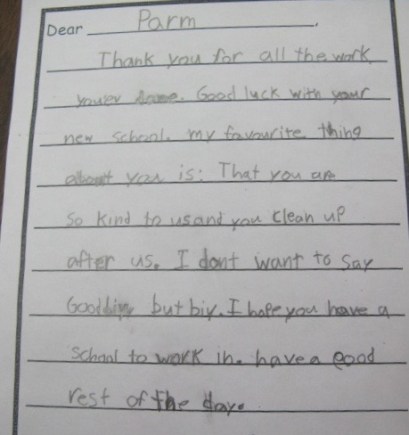 Dear Parm.
Thank you for all the work
youer done. Good luck with your
new school. my favourite thing
about you is: That you are
so kind to us and you clean up
after us. I dont want to say
Goodbiy but biy. I hope you have a
school to work in. have a good
rest of the day.